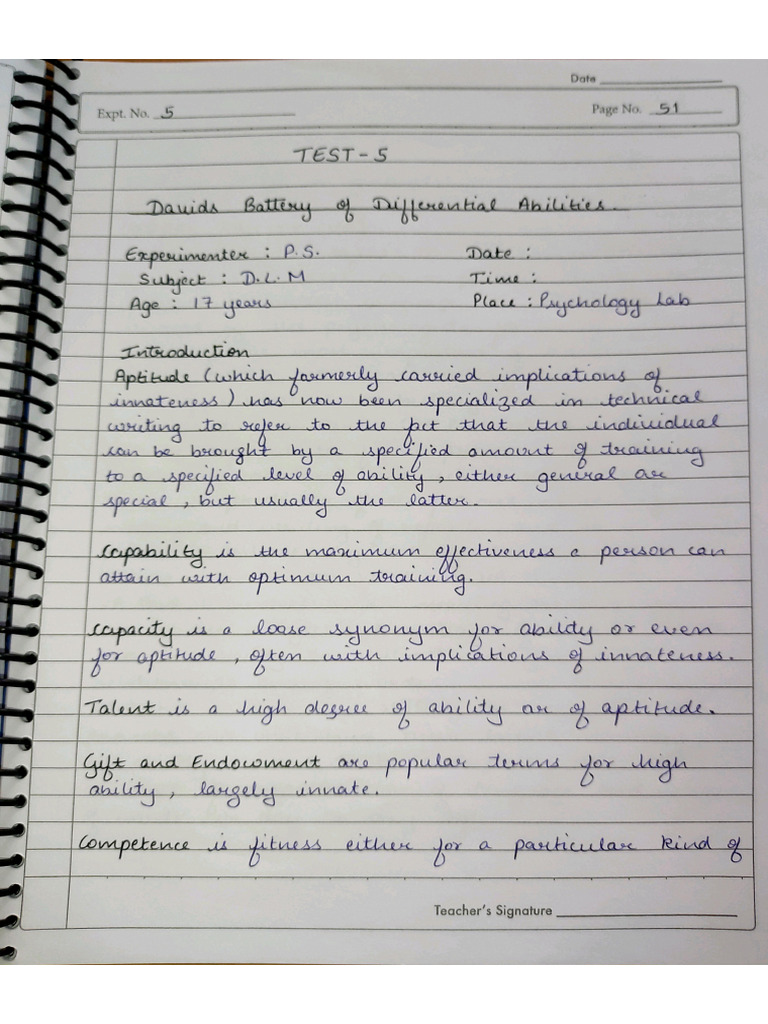 Date
Expt. No. 5
Page No. 51
TEST-5
Davids Battery of Differential Abilities.
Experimenter : P.S.
Date :
Subject : D.L.M
Time :
Age : 17 years
Place : Psychology Lab
Introduction
Aptitude (which formerly carried implications of
innateness) has now been specialized in technical
writing to refer to the fct that the individual
can be brought by a specified amount of training
to a specified level of ability, either general or
special, but usually the latter.
Capability is the maximum effectiveness a person can
attain with optimum training.
Capacity is a loose synonym for ability or even
for aptitude, often with implications of innateness.
Talent is a high degree of ability or of aptitude.
Gift and Endowment are popular terms for high
ability, largely innate.
Competence is fitness either for a particular kind of
Teacher's Signature